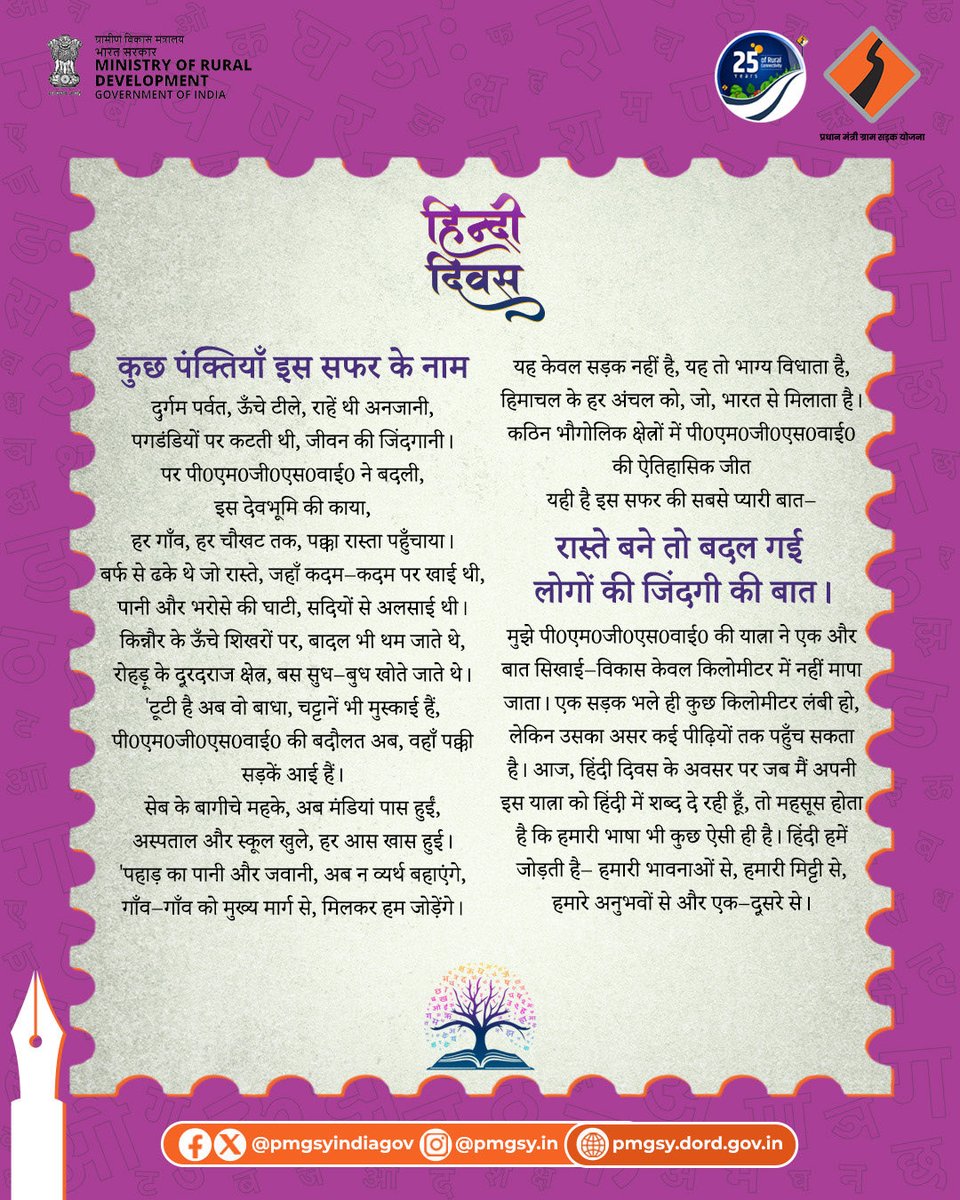 ग्रामीण विकास मंत्रालय
भारत सरकार
MINISTRY OF RURAL
DEVELOPMENT
GOVERNMENT OF INDIA
25 of Rural
Years Connectivity
प्रधान मंत्री ग्राम सड़क योजना
हिन्दी
दिवस
कुछ पंक्तियाँ इस सफर के नाम
दुर्गम पर्वत, ऊँचे टीले, राहें थी अनजानी,
पगडंडियों पर कटती थी, जीवन की जिंदगानी।
पर पी0एम0जी0एस0वाई0 ने बदली,
इस देवभूमि की काया,
हर गाँव, हर चौखट तक, पक्का रास्ता पहुँचाया।
बर्फ से ढके थे जो रास्ते, जहाँ कदम–कदम पर खाई थी,
पानी और भरोसे की घाटी, सदियों से अलसाई थी।
किन्नौर के ऊँचे शिखरों पर, बादल भी थम जाते थे,
रोहड़ू के दूरदराज क्षेत्र, बस सुध–बुध खोते जाते थे।
'टूटी है अब वो बाधा, चट्टानें भी मुस्काई हैं,
पी0एम0जी0एस0वाई0 की बदौलत अब, वहाँ पक्की
सड़कें आई हैं।
सेब के बागीचे महके, अब मंडियां पास हुईं,
अस्पताल और स्कूल खुले, हर आस खास हुई।
'पहाड़ का पानी और जवानी, अब न व्यर्थ बहाएंगे,
गाँव–गाँव को मुख्य मार्ग से, मिलकर हम जोड़ेंगे।
यह केवल सड़क नहीं है, यह तो भाग्य विधाता है,
हिमाचल के हर अंचल को, जो, भारत से मिलाता है।
कठिन भौगोलिक क्षेत्रों में पी0एम0जी0एस0वाई0
की ऐतिहासिक जीत
यही है इस सफर की सबसे प्यारी बात–
रास्ते बने तो बदल गई
लोगों की जिंदगी की बात।
मुझे पी0एम0जी0एस0वाई0 की यात्रा ने एक और
बात सिखाई–विकास केवल किलोमीटर में नहीं मापा
जाता। एक सड़क भले ही कुछ किलोमीटर लंबी हो,
लेकिन उसका असर कई पीढ़ियों तक पहुँच सकता
है। आज, हिंदी दिवस के अवसर पर जब मैं अपनी
इस यात्रा को हिंदी में शब्द दे रही हूँ, तो महसूस होता
है कि हमारी भाषा भी कुछ ऐसी ही है। हिंदी हमें
जोड़ती है– हमारी भावनाओं से, हमारी मिट्टी से,
हमारे अनुभवों से और एक–दूसरे से।
@pmgsyindiagov @pmgsy.in pmgsy.dord.gov.in